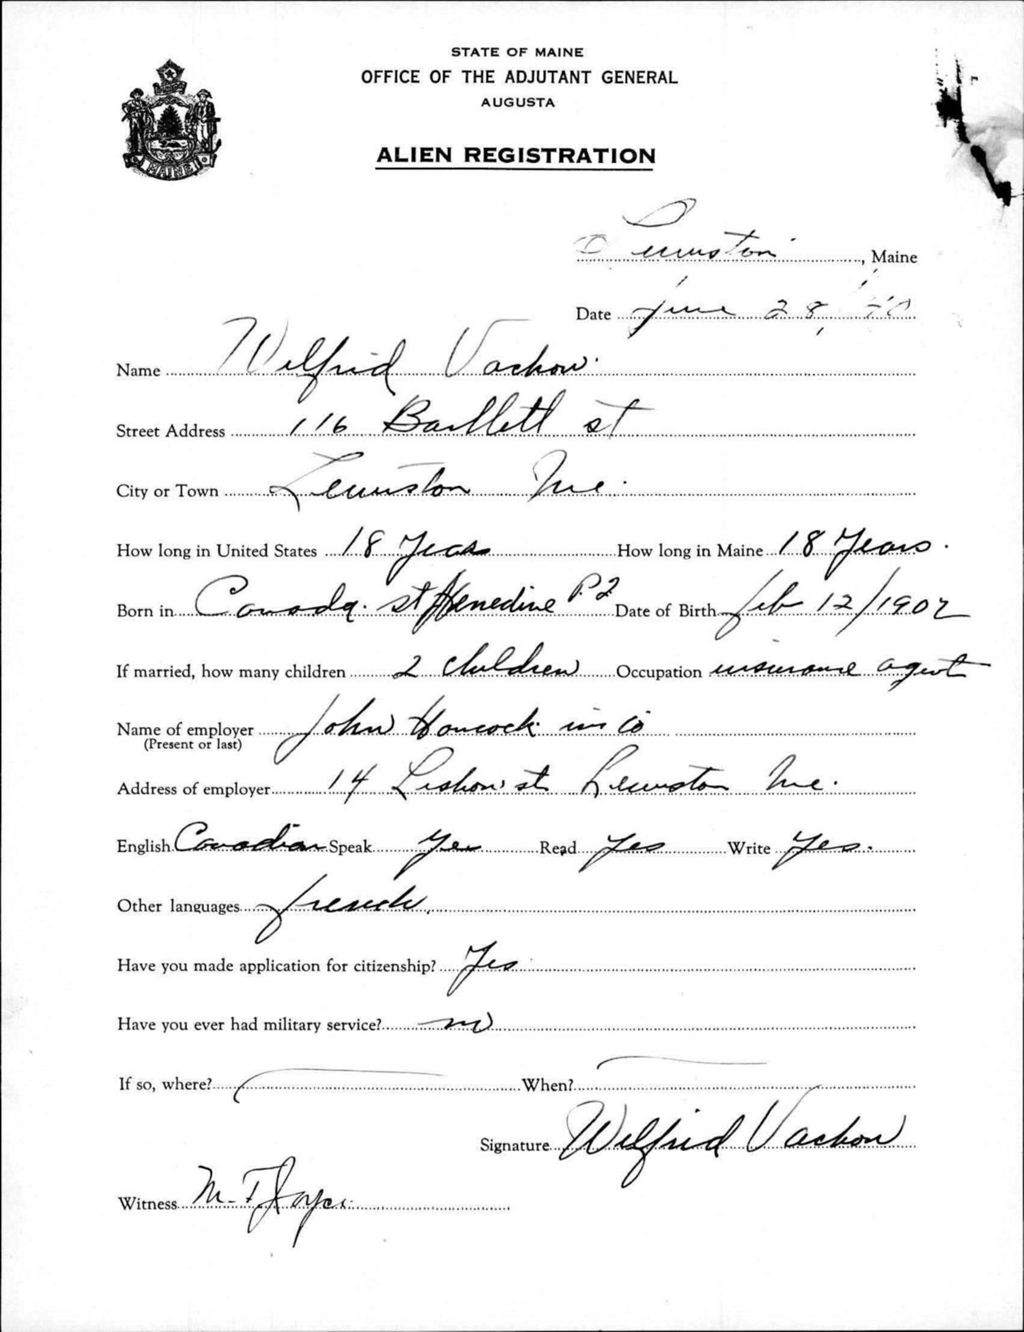 STATE OF MAINE
OFFICE OF THE ADJUTANT GENERAL
AUGUSTA
ALIEN REGISTRATION
MAINE
Lewiston, Maine
Date June 28, 40
Name Wilfrid Vachon.
Street Address 116 Bartlett st
City or Town Lewiston Me.
How long in United States 18 Years How long in Maine 18 Years.
Born in Canada. st Henedine P.2 Date of Birth feb 12/1902
If married, how many children 2 children Occupation insurance agent
Name of employer John Hancock ins Co
(Present or last)
Address of employer 14 Lisbon st. Lewiston Me.
English Canadian Speak Yes Read Yes Write Yes.
Other languages french.
Have you made application for citizenship? Yes
Have you ever had military service? no
If so, where? When?
Signature Wilfrid Vachon
Witness M. F. Joyce